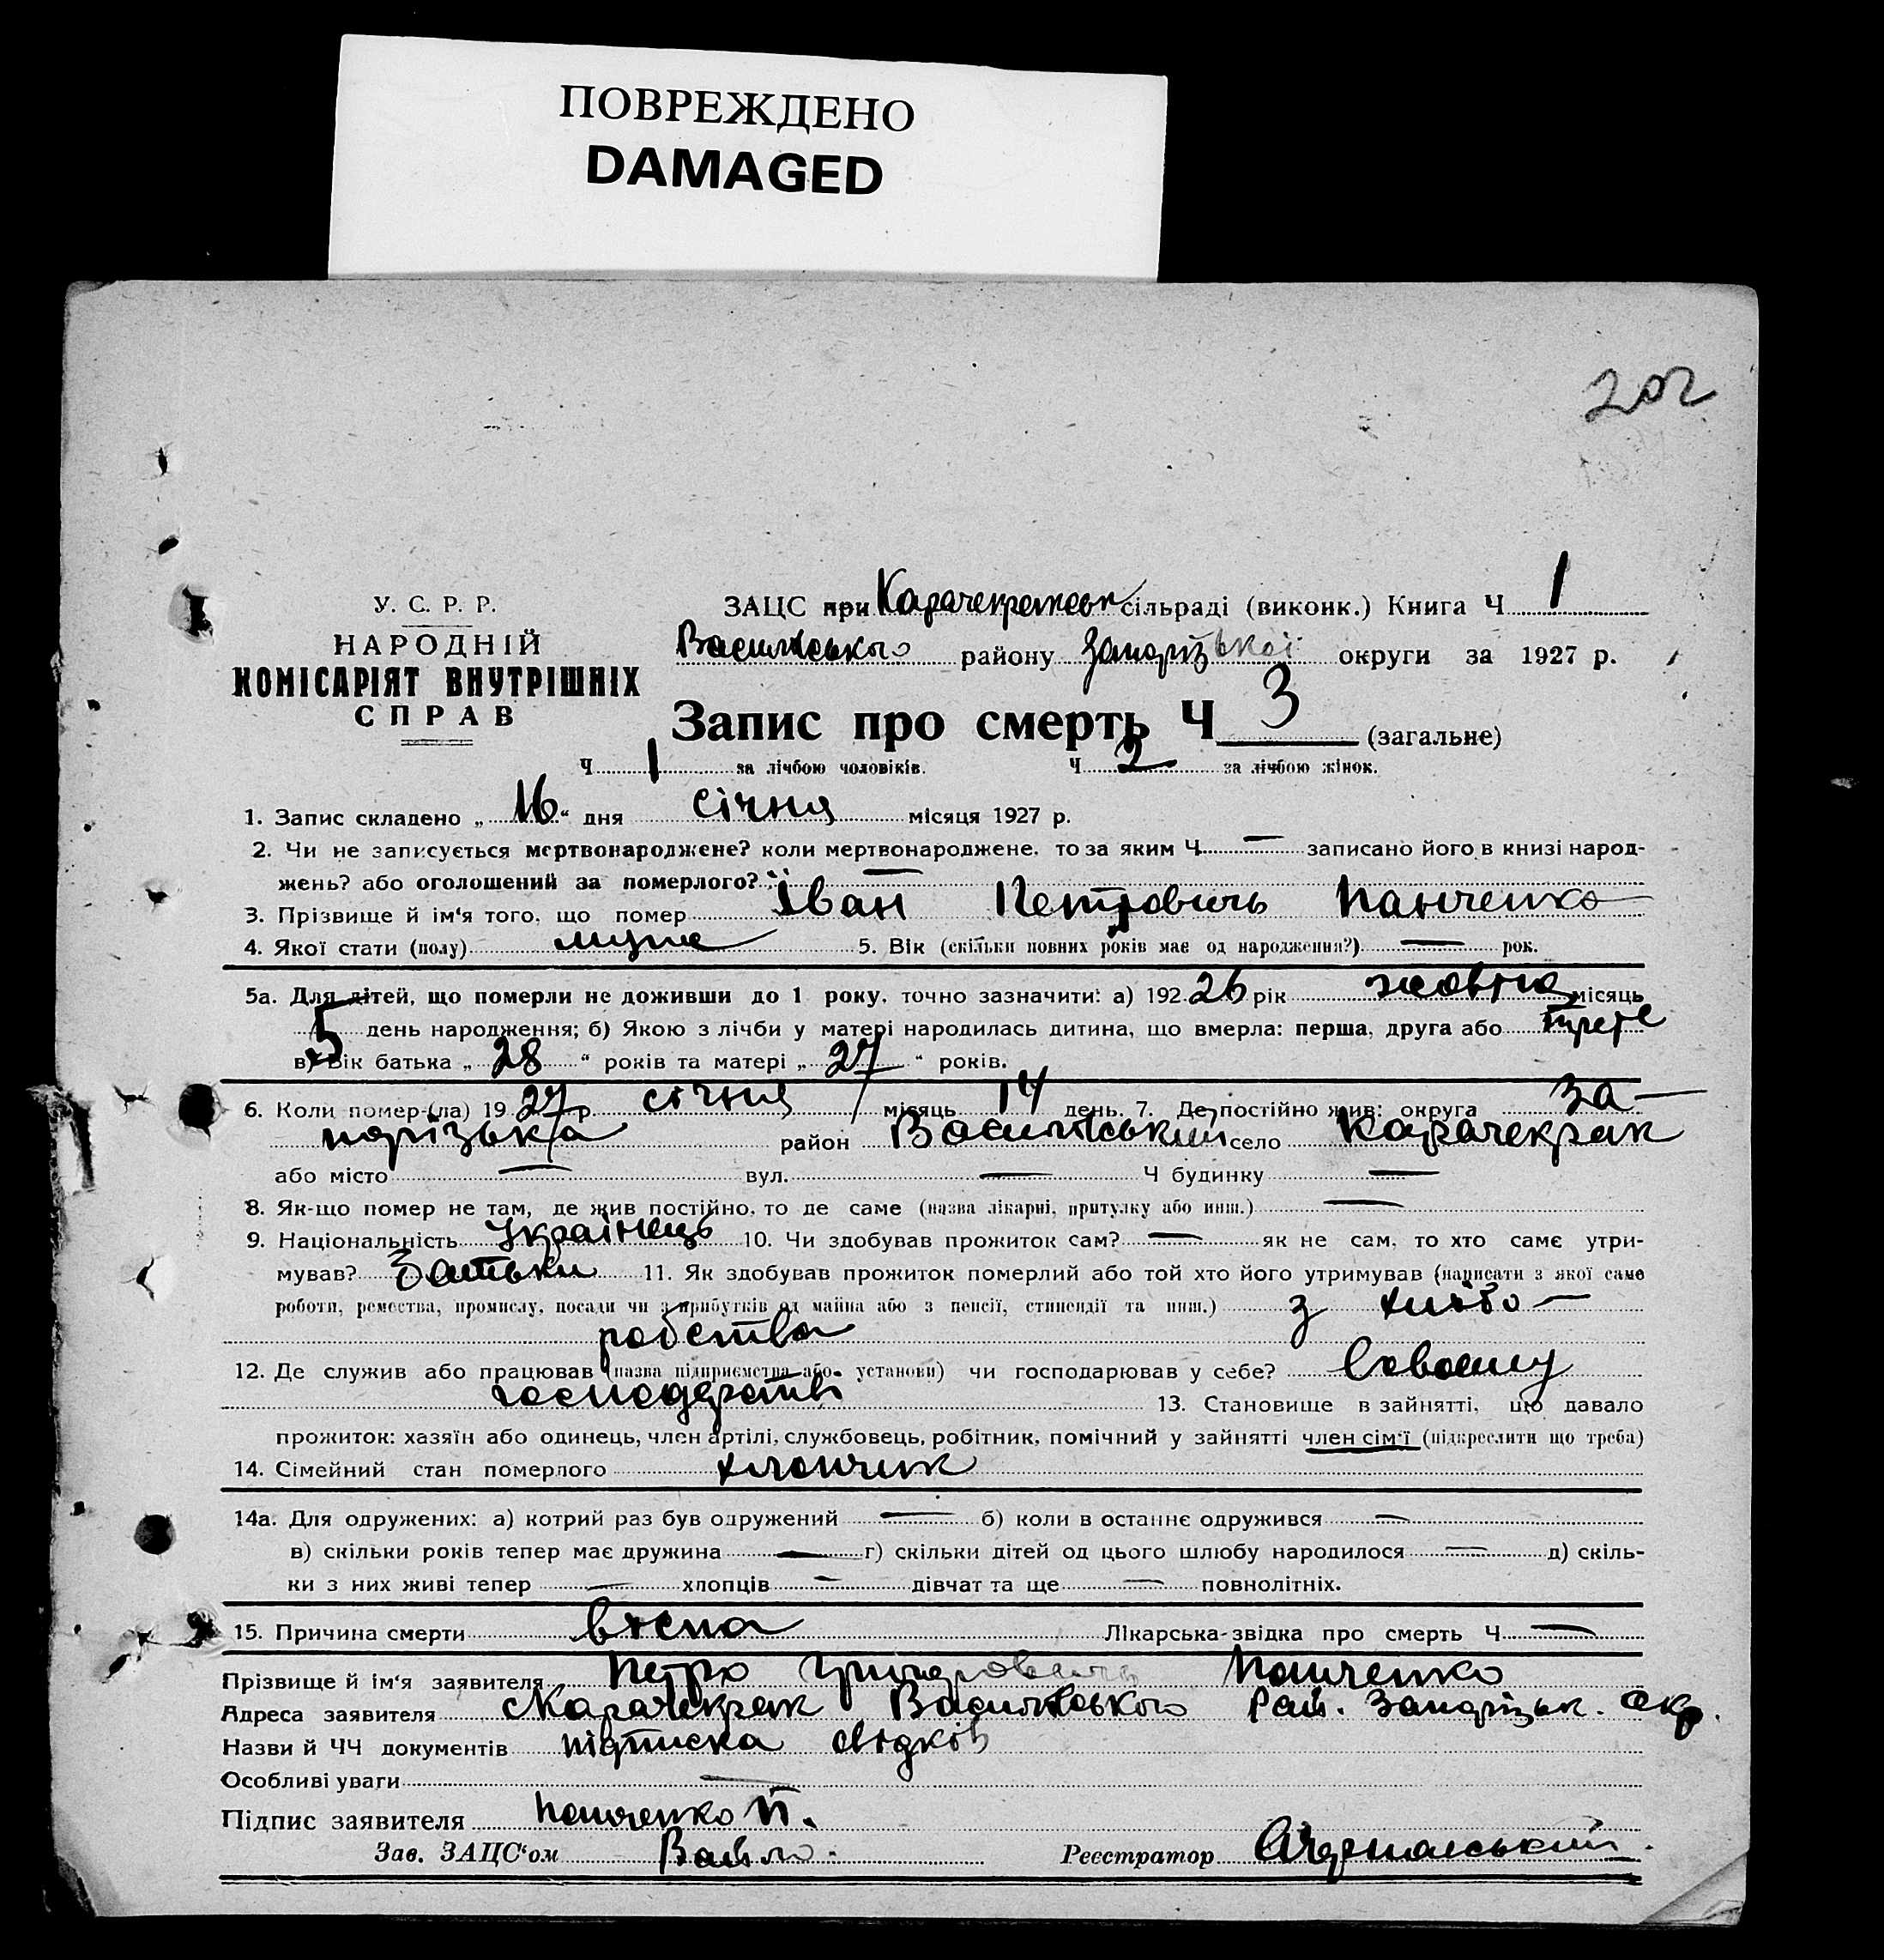 ПОВРЕЖДЕНО
DAMAGED
202
У. С. Р. Р.
НАРОДНІЙ
КОМІСАРІЯТ ВНУТРІШНІХ
СПРАВ
ЗАЦС при Карачекракськ сільраді (виконк.) Книга Ч 1
Василівського району Запорізької округи за 1927 р.
Запис про смерть Ч 3 (загальне)
Ч 1 за лічбою чоловіків. Ч 2 за лічбою жінок.
1. Запис складено „ 16 “ дня січня місяця 1927 р.
2. Чи не записується мертвонароджене? коли мертвонароджене, то за яким Ч — записано його в книзі народ-
жень? або оголошений за померлого? —
3. Прізвище й ім‘я того, що помер Іван Петровичь Панченко
4. Якої стати (полу) муже 5. Вік (скільки повних років має од народження?) — рок.
5а. Для дітей, що померли не доживши до 1 року, точно зазначити: а) 192 26 рік жовтня місяць
5 день народження; б) Якою з лічби у матері народилась дитина, що вмерла: перша, друга або трете
в) Вік батька „ 28 “ років та матері „ 27 “ років.
6. Коли помер-(ла) 19 27 р. січня місяць 14 день. 7. Де постійно жив: округа За-
порізька район Василівський село Карачекрак
або місто — вул. — Ч будинку —
8. Як-що помер не там, де жив постійно, то де саме (назва лікарні, притулку або инш.) —
9. Національність Українець 10. Чи здобував прожиток сам? — як не сам, то хто саме утри-
мував? Батьки 11. Як здобував прожиток померлий або той хто його утримував (написати з якої саме
роботи, ремества, промислу, посади чи з прибутків од майна або з пенсії, стипендії та инш.) з хлібо-
робства
12. Де служив або працював (назва підприємства або установи) чи господарював у себе? В своєму
господарстві 13. Становище в зайнятті, що давало
прожиток: хазяїн або одинець, член артілі, службовець, робітник, помічний у зайнятті член сім‘ї (підкреслити що треба)
14. Сімейний стан померлого хлопчик
14а. Для одружених: а) котрий раз був одружений — б) коли в останнє одружився —
в) скільки років тепер має дружина — г) скільки дітей од цього шлюбу народилося — д) скіль-
ки з них живі тепер — хлопців — дівчат та ще — повнолітніх.
15. Причина смерти віспа Лікарська-звідка про смерть Ч —
Прізвище й ім‘я заявителя Петро Панченко
Адреса заявителя Карачекрак Василівського Рай. Запорізьк. окр.
Назви й ЧЧ документів підписка свідків
Особливі уваги —
Підпис заявителя Панченко П.
Зав. ЗАЦС‘ом
Реєстратор